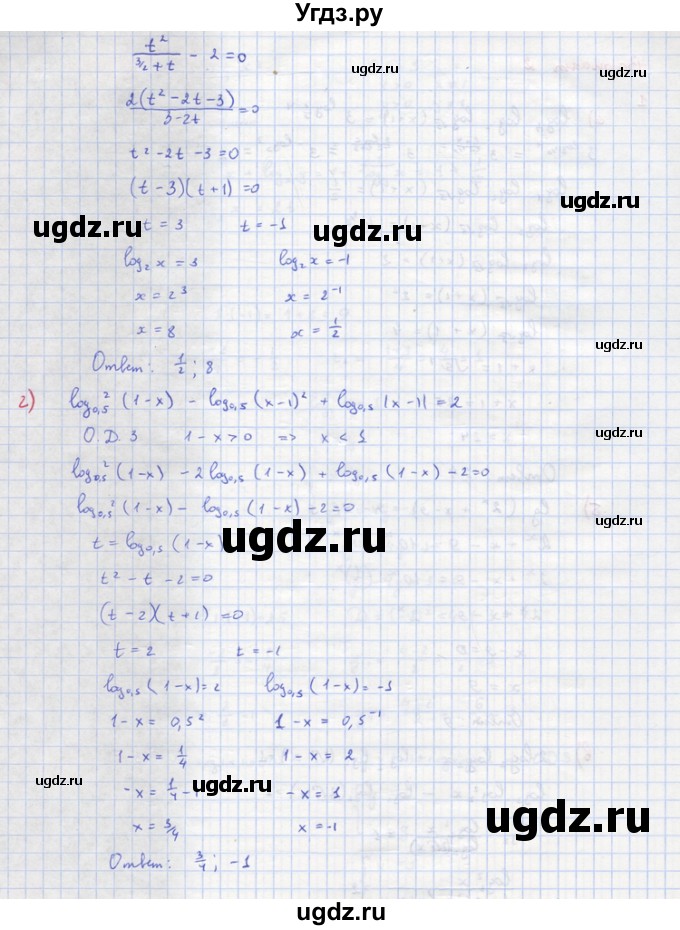 Угдз.ру
t²/(3/2 + t) - 2 = 0
ugdz.ru
ugdz.ru
2(t² - 2t - 3)/(3 - 2t) = 0
t² - 2t - 3 = 0
(t - 3)(t + 1) = 0
ugdz.ru
ugdz.ru ugdz.ru
t = 3 t = -1
log₂ x = 3 log₂ x = -1
x = 2³ x = 2⁻¹
x = 8 x = 1/2
ugdz.ru
ugdz.ru
Ответ: 1/2 ; 8
2) log₀,₅² (1 - x) - log₀,₅ (x - 1)² + log₀,₅ |x - 1| = 2
О.Д.З 1 - x > 0 => x < 1
ugdz.ru
log₀,₅² (1 - x) - 2 log₀,₅ (1 - x) + log₀,₅ (1 - x) - 2 = 0
log₀,₅² (1 - x) - log₀,₅ (1 - x) - 2 = 0
t = log₀,₅ (1 - x)
ugdz.ru
t² - t - 2 = 0
(t - 2)(t + 1) = 0
t = 2 t = -1
log₀,₅ (1 - x) = 2 log₀,₅ (1 - x) = -1
1 - x = 0,5² 1 - x = 0,5⁻¹
1 - x = 1/4 1 - x = 2
ugdz.ru
ugdz.ru
-x = 1/4 - 1 -x = 1
ugdz.ru
x = 3/4 x = -1
ugdz.ru
Ответ: 3/4 ; -1
ugdz.ru